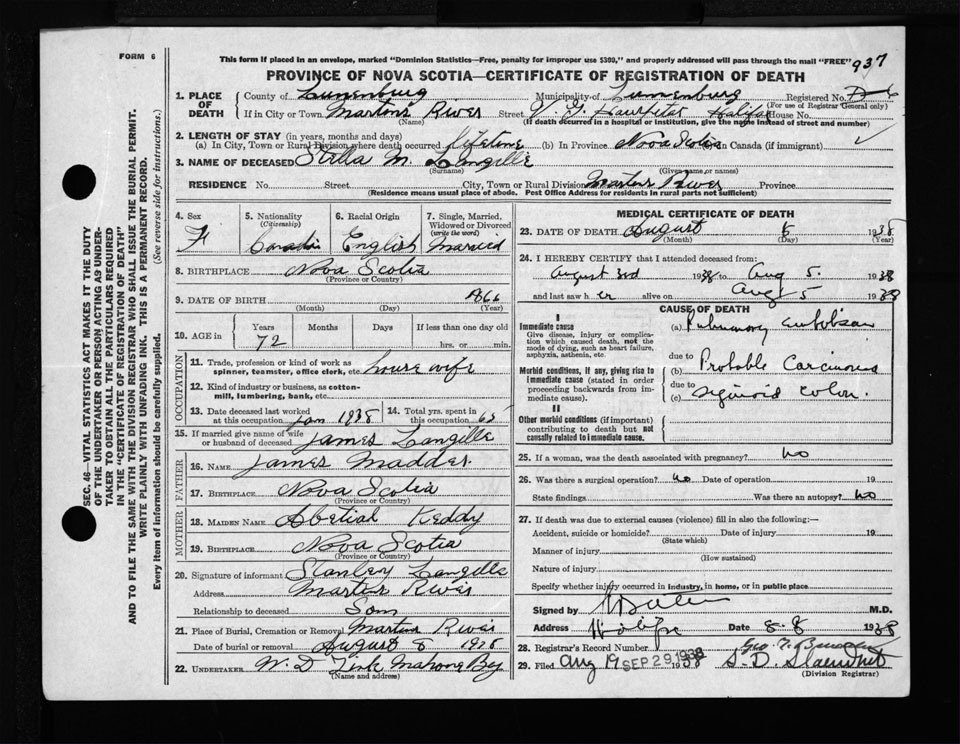 FORM 6
This form if placed in an envelope, marked "Dominion Statistics—Free, penalty for improper use $300," and properly addressed will pass through the mail "FREE" 937
PROVINCE OF NOVA SCOTIA—CERTIFICATE OF REGISTRATION OF DEATH
1. PLACE OF DEATH
County of Lunenburg Municipality of Lunenburg Registered No.
(For use of Registrar General only)
If in City or Town Martins River Street Halifax House No.
(Name) (If death occurred in a hospital or institution, give the name instead of street and number)
2. LENGTH OF STAY (in years, months and days)
(a) In City, Town or Rural Division where death occurred lifetime (b) In Province Nova Scotia in Canada (if immigrant)
3. NAME OF DECEASED Stella M. Langille
(Surname) (Given name or names)
RESIDENCE No. Street City, Town or Rural Division Martins River Province
(Residence means usual place of abode. Post Office Address for residents in rural parts not sufficient)
4. Sex F
5. Nationality (Citizenship) Canadian
6. Racial Origin English
7. Single, Married, Widowed or Divorced (write the word) Married
8. BIRTHPLACE Nova Scotia
(Province or Country)
9. DATE OF BIRTH 1866
(Month) (Day) (Year)
10. AGE in Years Months Days If less than one day old
72 hrs. or min.
OCCUPATION
11. Trade, profession or kind of work as spinner, teamster, office clerk, etc. house wife
12. Kind of industry or business, as cotton-mill, lumbering, bank, etc.
13. Date deceased last worked at this occupation Jan 1938
14. Total yrs. spent in this occupation 65
15. If married give name of wife or husband of deceased James Langille
FATHER
16. NAME James Madder
17. BIRTHPLACE Nova Scotia
(Province or Country)
MOTHER
18. MAIDEN NAME Keddy
19. BIRTHPLACE Nova Scotia
(Province or Country)
20. Signature of informant Stanley Langille
Address Martins River
Relationship to deceased Son
21. Place of Burial, Cremation or Removal Martins River
Date of burial or removal August 8 1938
22. UNDERTAKER W. D. Mahone Bay
(Name and address)
MEDICAL CERTIFICATE OF DEATH
23. DATE OF DEATH August 5 1938
(Month) (Day) (Year)
24. I HEREBY CERTIFY that I attended deceased from:
August 3rd 1938 to Aug 5. 1938
and last saw h er alive on Aug 5 1938
CAUSE OF DEATH
I
Immediate cause
Give disease, injury or complication which caused death, not the mode of dying, such as heart failure, asphyxia, asthenia, etc.
(a) Pulmonary embolism
due to
Morbid conditions, if any, giving rise to immediate cause (stated in order proceeding backwards from immediate cause).
(b) Probable Carcinoma
due to
(c) sigmoid colon.
II
Other morbid conditions (if important) contributing to death but not causally related to immediate cause.
25. If a woman, was the death associated with pregnancy? no
26. Was there a surgical operation? no Date of operation 19
State findings Was there an autopsy? no
27. If death was due to external causes (violence) fill in also the following:—
Accident, suicide or homicide? Date of injury 19
(State which)
Manner of injury
(How sustained)
Nature of injury
Specify whether injury occurred in industry, in home, or in public place
Signed by M.D.
Address Halifax Date 8-8 1938
28. Registrar's Record Number
29. Filed Aug 19 1938 SEP 29 1938
(Division Registrar)
SEC. 46—VITAL STATISTICS ACT MAKES IT THE DUTY
OF THE UNDERTAKER OR PERSON ACTING AS UNDER-
TAKER TO OBTAIN ALL THE PARTICULARS REQUIRED
IN THE "CERTIFICATE OF REGISTRATION OF DEATH"
AND TO FILE THE SAME WITH THE DIVISION REGISTRAR WHO SHALL ISSUE THE BURIAL PERMIT.
WRITE PLAINLY WITH UNFADING INK. THIS IS A PERMANENT RECORD.
Every item of information should be carefully supplied. (See reverse side for instructions.)